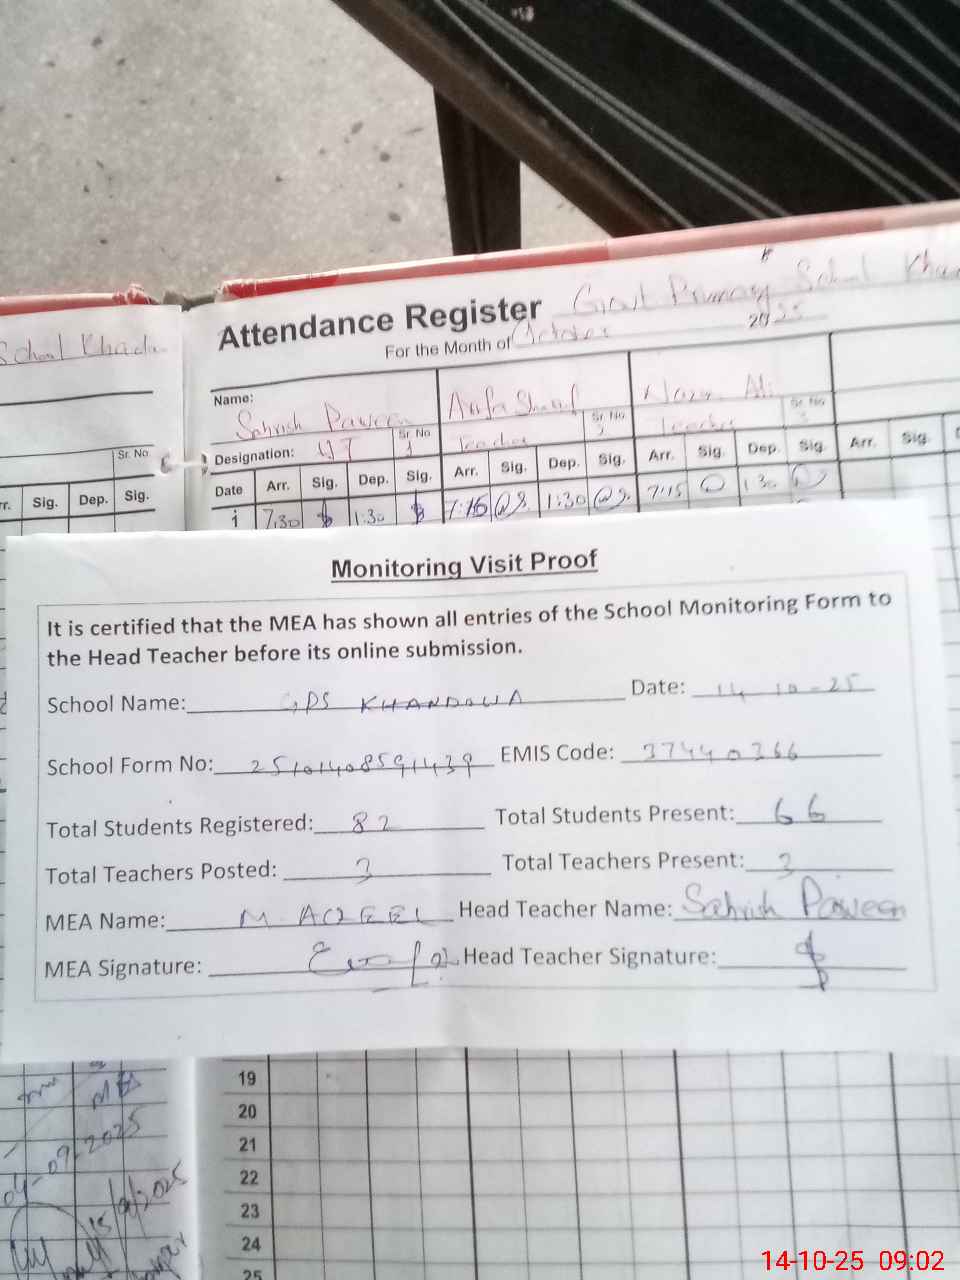 School Khada
Attendance Register Govt Primary School Khan
For the Month of October 2025
Name: Sahrish Paween Arfa Sharif Ali
Sr. No Sr. No. Sr. No.
Designation: HT Teacher Teacher
Sr. No.
Date Arr. Sig. Dep. Sig. Arr. Sig. Dep. Sig. Arr. Sig. Dep. Sig. Arr. Sig.
Sig. Dep. Sig.
1 7:30 1:30 7:15 1:30 7:15 1:30
Monitoring Visit Proof
It is certified that the MEA has shown all entries of the School Monitoring Form to
the Head Teacher before its online submission.
School Name: GPS KHANDOWA Date: 14-10-25
School Form No: 25101408591439 EMIS Code: 37440366
Total Students Registered: 82 Total Students Present: 66
Total Teachers Posted: 3 Total Teachers Present: 3
MEA Name: M AQEEL Head Teacher Name: Sahrish Paween
MEA Signature: Head Teacher Signature:
19
20
21
22
23
24
25
04-09-2025
14-10-25 09:02